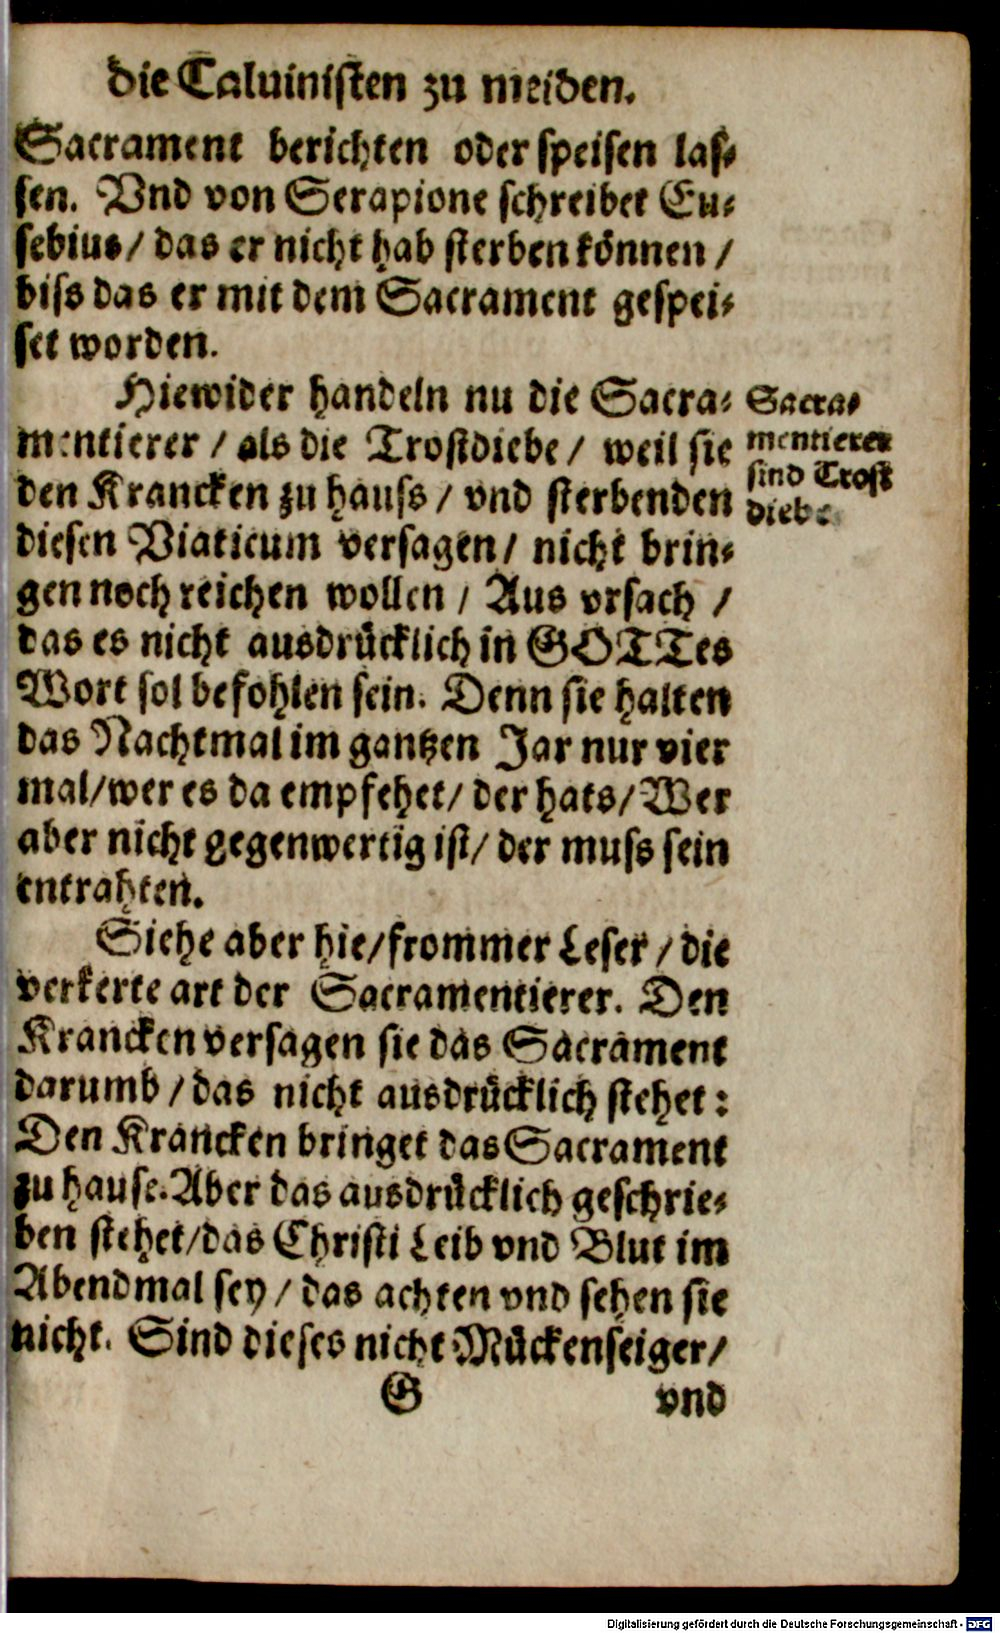 die Caluinisten zu meiden.
Sacrament berichten oder speisen las⸗
sen. Vnd von Serapione schreibet Eu⸗
sebius/ das er nicht hab sterben können /
biss das er mit dem Sacrament gespei⸗
set worden.
Hiewider handeln nu die Sacra⸗
mentierer / als die Trostdiebe / weil sie
den Krancken zu hauss / vnd sterbenden
diesen Viaticum versagen / nicht brin⸗
gen noch reichen wollen / Aus vrsach /
das es nicht ausdrücklich in GOTTes
Wort sol befohlen sein. Denn sie halten
das Nachtmal im gantzen Jar nur vier
mal/wer es da empfehet/ der hats/ Wer
aber nicht gegenwertig ist/ der muss sein
entrahten.
Sacra⸗
mentierer
sind Trost
diebe
Siehe aber hie/frommer Leser / die
verkerte art der Sacramentierer. Den
Krancken versagen sie das Sacrament
darumb / das nicht ausdrücklich stehet :
Den Krancken bringet das Sacrament
zu hause. Aber das ausdrücklich geschrie⸗
ben stehet/das Christi Leib vnd Blut im
Abendmal sey / das achten vnd sehen sie
nicht. Sind dieses nicht Mückenseiger/
G vnd
Digitalisierung gefördert durch die Deutsche Forschungsgemeinschaft - DFG